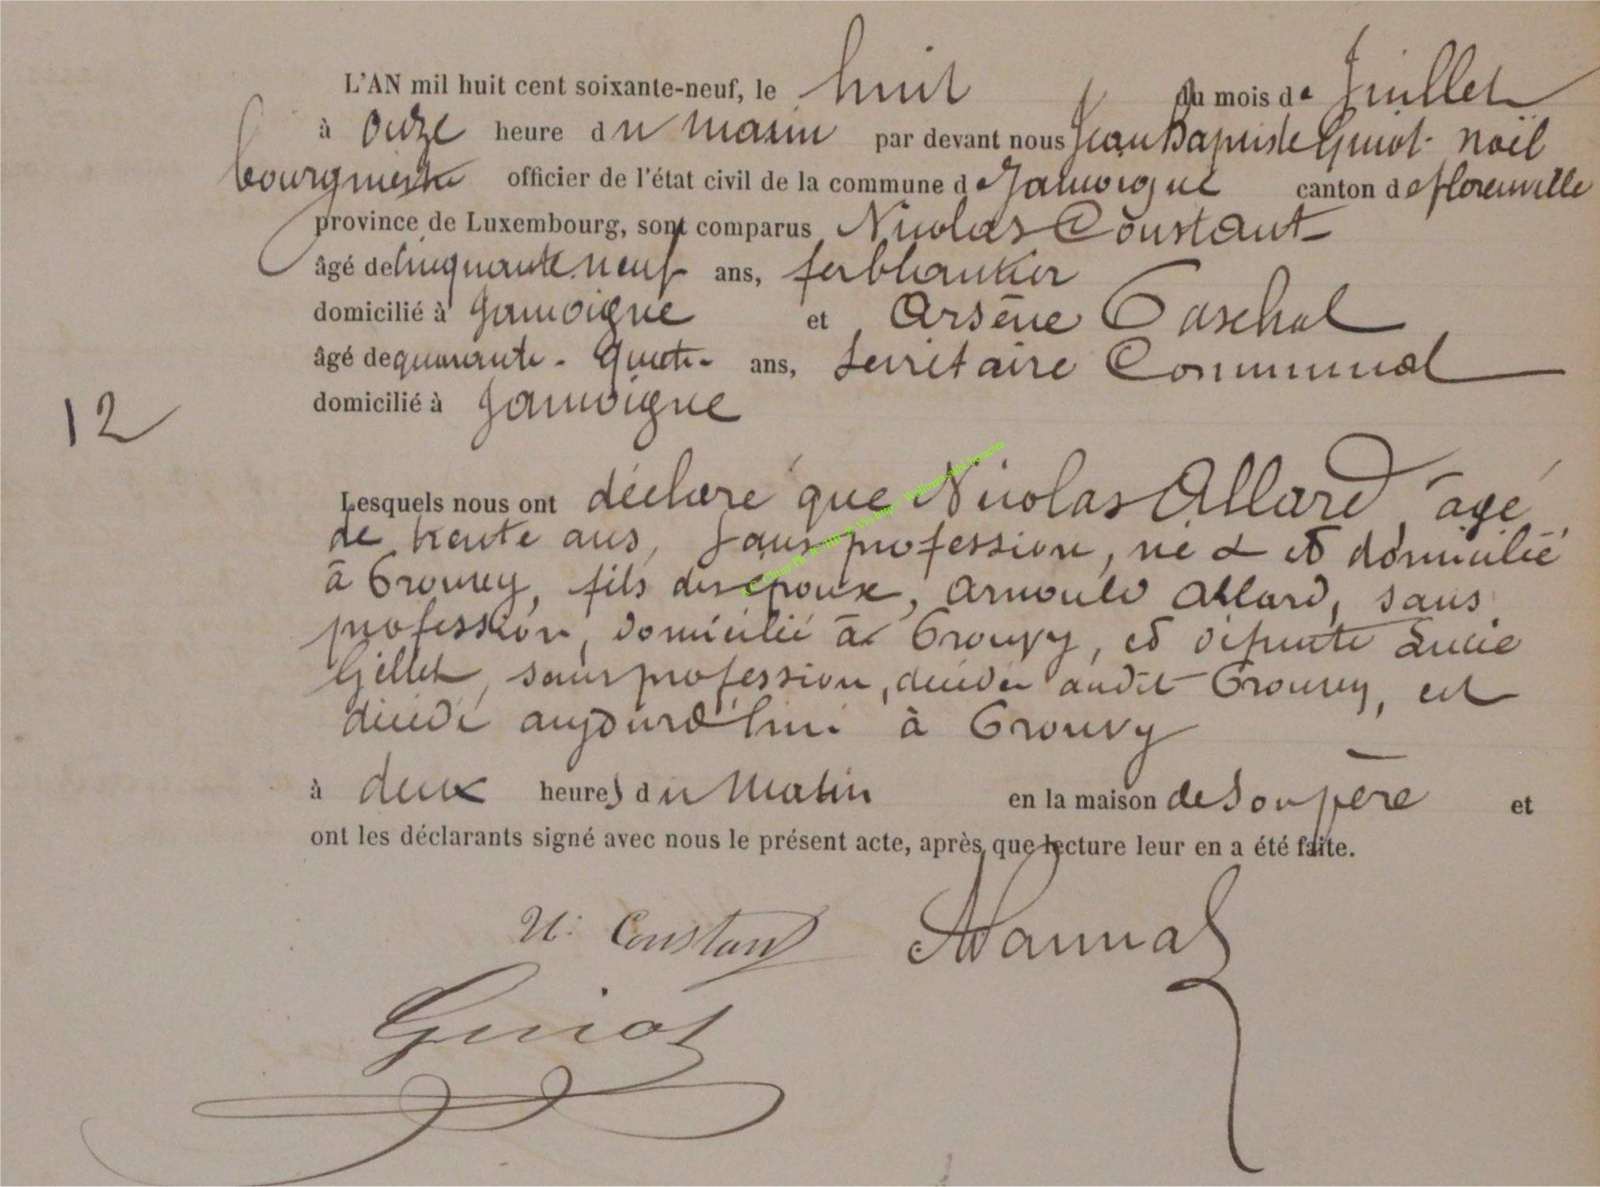 L'AN mil huit cent soixante-neuf, le huit du mois de Juillet
à onze heure du matin par devant nous Jean Baptiste Guiot-Noël
bourgmestre officier de l'état civil de la commune de Jamoigne canton de florenville
province de Luxembourg, sont comparus Nicolas Constant
âgé de cinquante neuf ans, ferblantier
domicilié à Jamoigne et Arsène Paschal
âgé de quarante- ans, secrétaire Communal
domicilié à Jamoigne
12
Lesquels nous ont déclaré que Nicolas Allard, âgé
de trente ans, sans profession, né et domicilié
à Prouvy, fils des époux, Arnould Allard, sans
profession, domicilié à Prouvy, et défunte Lucie
Gillet, sans profession, décédée audit Prouvy, est
décédé aujourd'hui à Prouvy
à deux heures du matin en la maison de son père et
ont les déclarants signé avec nous le présent acte, après que lecture leur en a été faite.
N. Constant
Guiot